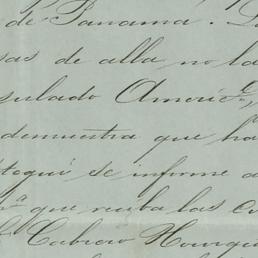 de Panamá. L
sas de alla no la
sulado Americ
demuestra que ha
se informe a
que reciba las
Cabrero